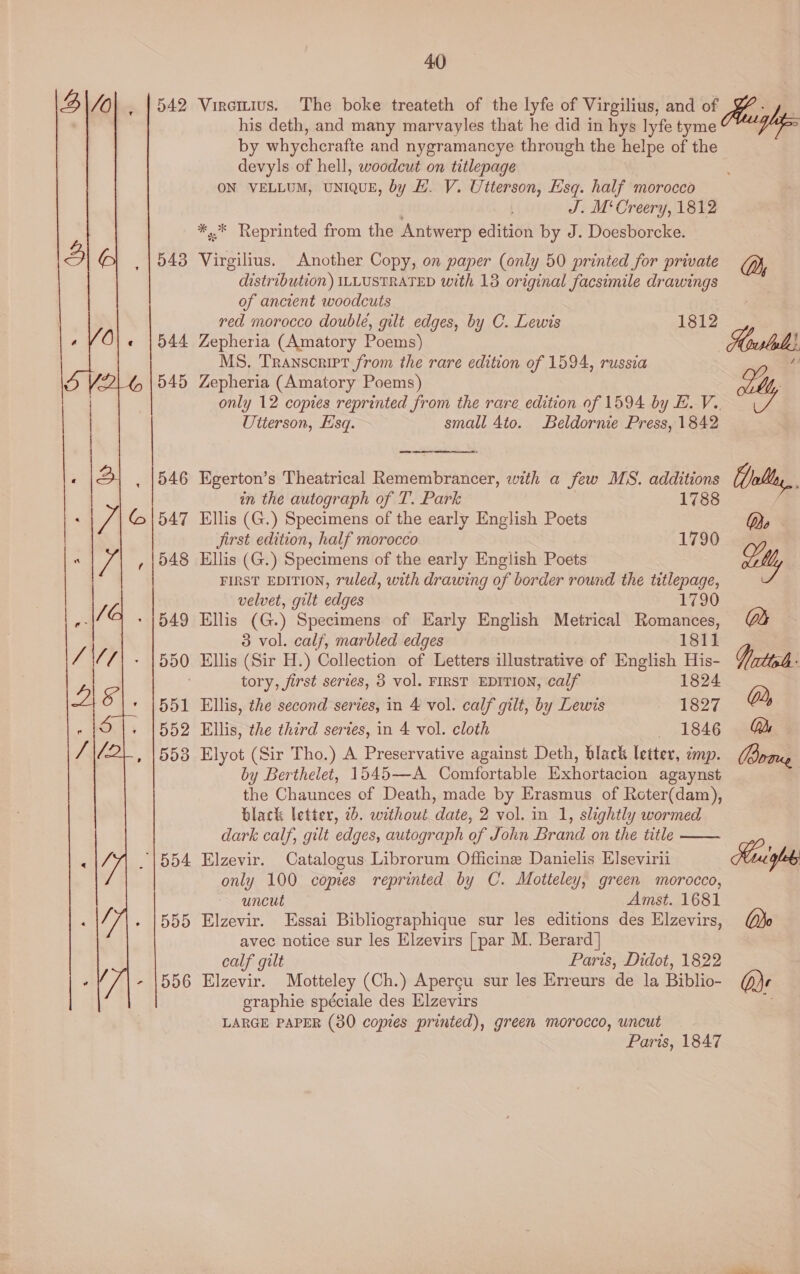 40
3 10 . 542 Virgilius. The boke treateth of the lyfe of Virgilius, and of
his deth, and many marvayles that he did in hys lyfe tyme
by whychcrafte and nygramancye through the helpe of the
devyls of hell, woodcut on titlepage
ON VELLUM, UNIQUE, by E. V. Utterson, Esq. half morocco
J. M‘Creery, 1812
*** Reprinted from the Antwerp edition by J. Doesborcke.
543 Virgilius. Another Copy, on paper (only 50 printed for private
distribution) ILLUSTRATED with 13 original facsimile drawings
of ancient woodcuts
red morocco doublé, gilt edges, by C. Lewis 1812
544 Zepheria (Amatory Poems)
MS. Transcript from the rare edition of 1594, russia
545 Zepheria (Amatory Poems) Lilly
only 12 copies reprinted from the rare edition of 1594 by E. V.
Utterson, Esq. small 4to. Beldornie Press, 1842
546 Egerton's Theatrical Remembrancer, with a few MS. additions
in the autograph of T. Park 1788
7 6 547 Ellis (G.) Specimens of the early English Poets
first edition, half morocco 1790
7 548 Ellis (G.) Specimens of the early English Poets Lilly
FIRST EDITION, ruled, with drawing of border round the titlepage,
velvet, gilt edges 1790
16 . 549 Ellis (G.) Specimens of Early English Metrical Romances,
3 vol. calf, marbled edges 1811
1 11 . 550 Ellis (Sir H.) Collection of Letters illustrative of English His-
tory, first series, 3 vol. FIRST EDITION, calf 1824
2 8 . 551 Ellis, the second series, in 4 vol. calf gilt, by Lewis 1827
552 Ellis, the third series, in 4 vol. cloth 1846
1 12 553 Elyot (Sir Tho.) A Preservative against Deth, black letter, imp.
by Berthelet, 1545—A Comfortable Exhortacion agaynst
the Chaunces of Death, made by Erasmus of Roter(dam),
black letter, ib. without date, 2 vol. in 1, slightly wormed
dark calf, gilt edges, autograph of John Brand on the title ——
554 Elzevir. Catalogus Librorum Officinæ Danielis Elsevirii
only 100 copies reprinted by C. Motteley, green morocco,
uncut Amst. 1681
555 Elzevir. Essai Bibliographique sur les editions des Elzevirs,
avec notice sur les Elzevirs [par M. Berard]
calf gilt Paris, Didot, 1822
556 Elzevir. Motteley (Ch.) Aperçu sur les Erreurs de la Biblio-
graphie spéciale des Elzevirs
LARGE PAPER (30 copies printed), green morocco, uncut
Paris, 1847